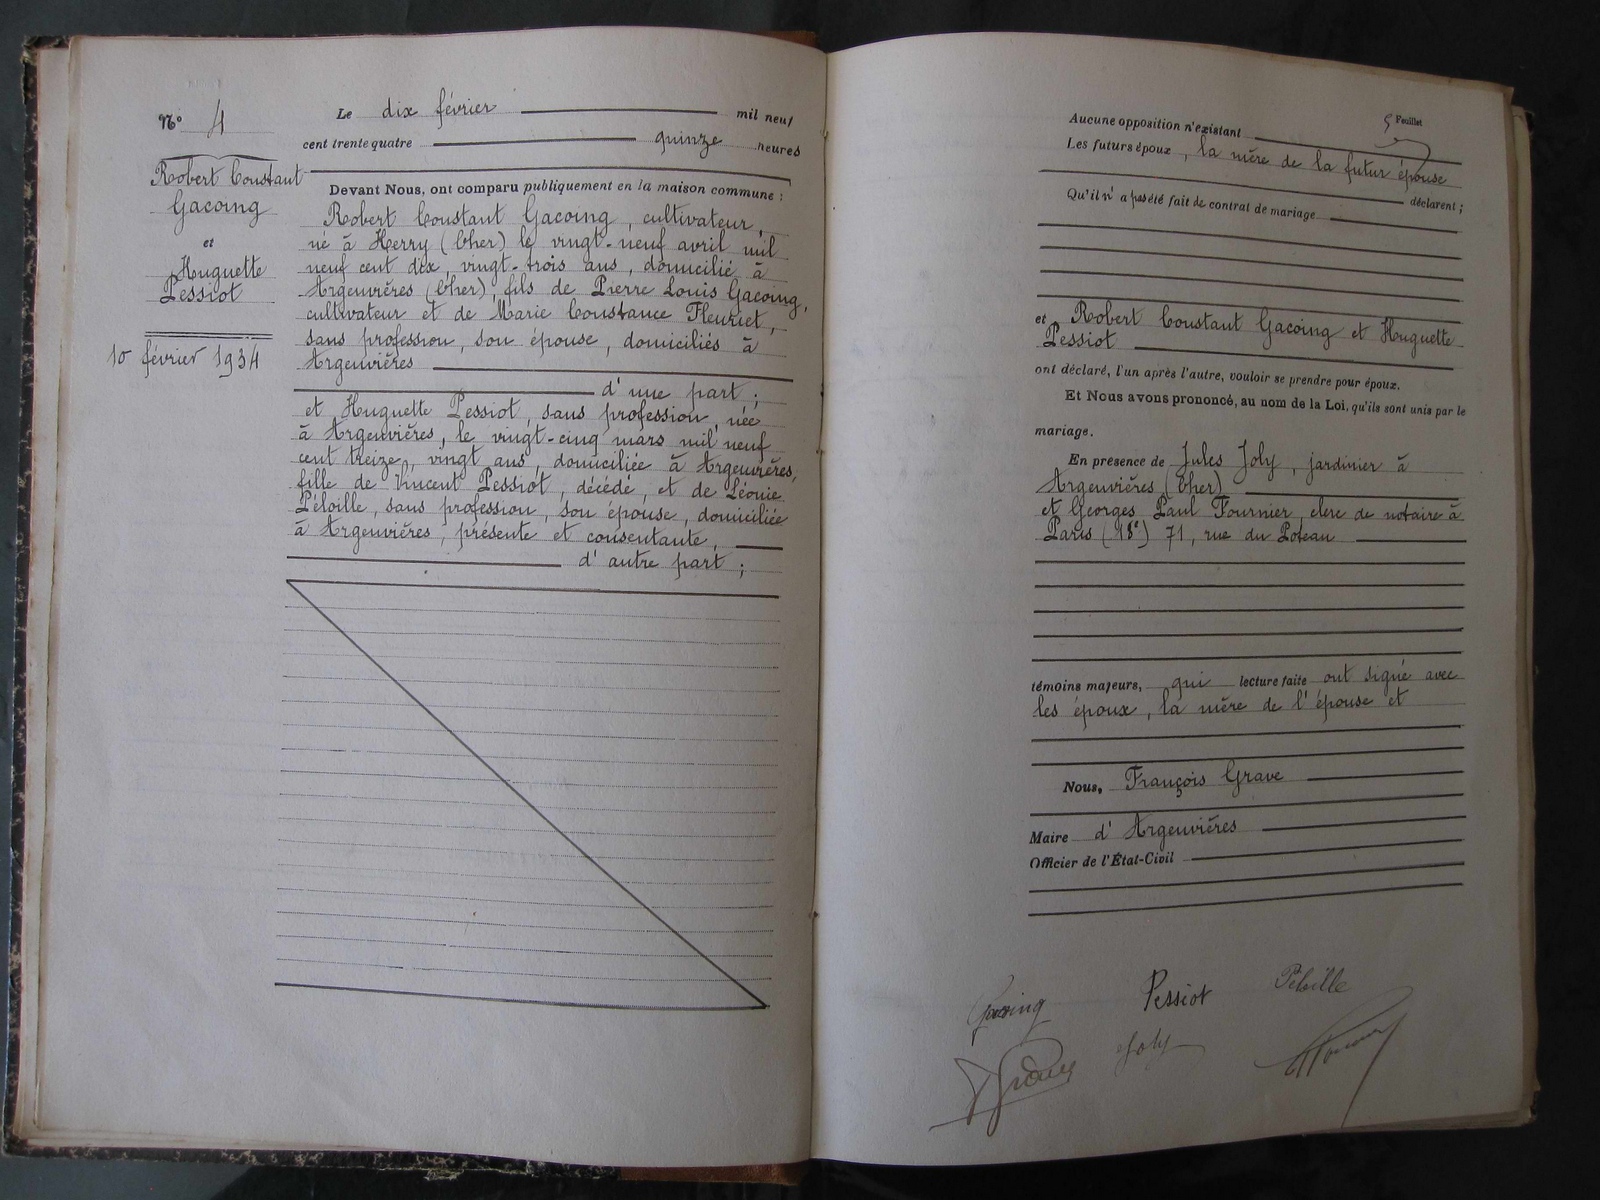 N° 4
Robert Constant
Gacoing
et
Huguette
Pessiot
10 février 1934
Le dix février mil neuf
cent trente quatre quinze heures
Devant Nous, ont comparu publiquement en la maison commune :
Robert Constant Gacoing, cultivateur,
né à Herry (Cher) le vingt-neuf avril mil
neuf cent dix, vingt-trois ans, domicilié à
Argenvières (Cher), fils de Pierre Louis Gacoing,
cultivateur et de Marie Constance Fleuriet,
sans profession, son épouse, domiciliés à
Argenvières
d'une part ;
et Huguette Pessiot, sans profession, née
à Argenvières, le vingt-cinq mars mil neuf
cent treize, vingt ans, domiciliée à Argenvières,
fille de Vincent Pessiot, décédé, et de Léonie
Péloille, sans profession, son épouse, domiciliée
à Argenvières, présente et consentante,
d'autre part ;
5 Feuillet
Aucune opposition n'existant
Les futurs époux, la mère de la futur épouse
déclarent ;
Qu'il n'a pas été fait de contrat de mariage
et Robert Constant Gacoing et Huguette
Pessiot
ont déclaré, l'un après l'autre, vouloir se prendre pour époux.
Et Nous avons prononcé, au nom de la Loi, qu'ils sont unis par le
mariage.
En présence de Jules Joly, jardinier à
Argenvières (Cher)
et Georges Paul Fournier, clerc de notaire à
Paris (18e) 71, rue du Poteau
témoins majeurs, qui lecture faite ont signé avec
les époux, la mère de l'épouse et
Nous, François Grave
Maire d'Argenvières
Officier de l'État-Civil
Gacoing Pessiot Péloille
Grave Joly